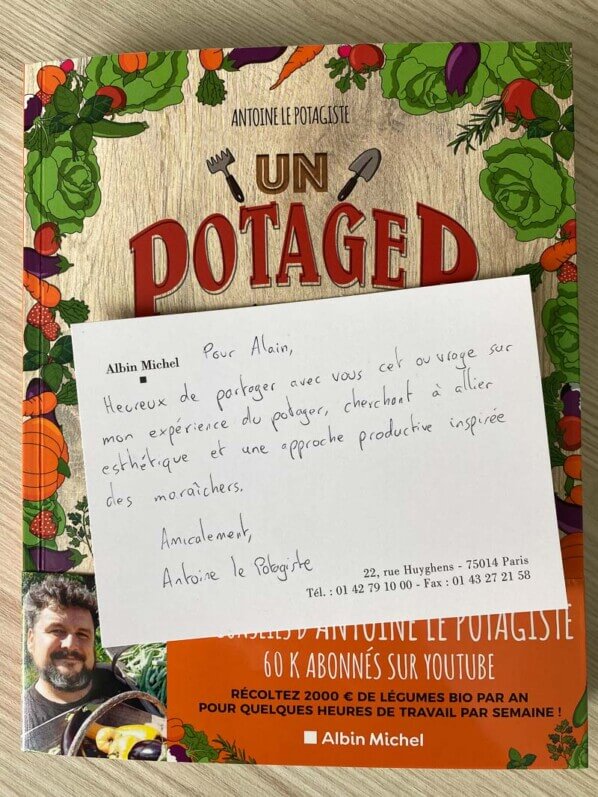 ANTOINE LE POTAGISTE
UN
POTAGER
Albin Michel
Pour Alain,
Heureux de partager avec vous cet ouvrage sur
mon expérience du potager, cherchant à allier
esthétique et une approche productive inspirée
des maraîchers.
Amicalement,
Antoine le Potagiste
22, rue Huyghens - 75014 Paris
Tél. : 01 42 79 10 00 - Fax : 01 43 27 21 58
CONSEILS D'ANTOINE LE POTAGISTE
60 K ABONNÉS SUR YOUTUBE
RÉCOLTEZ 2000 € DE LÉGUMES BIO PAR AN
POUR QUELQUES HEURES DE TRAVAIL PAR SEMAINE !
Albin Michel